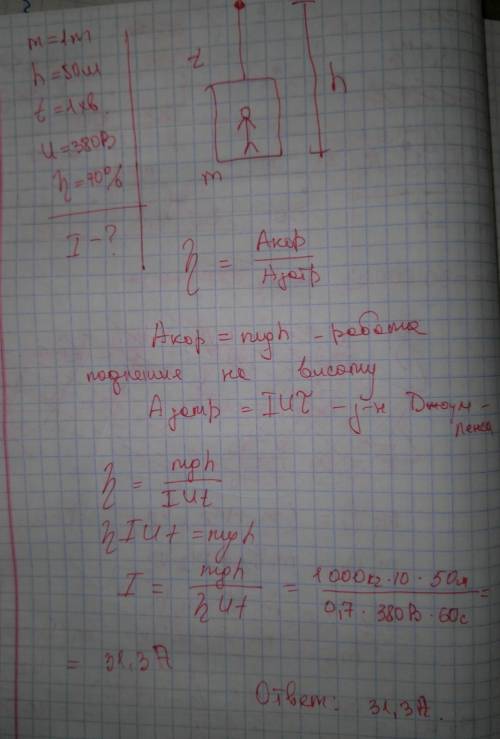 m=1т
h=50м
t=1хв.
U=380В
η=70%
I-?
t
h
m
η = Aкор / Aзатр
Aкор = mgh - работа
поднятия на висоту
Aзатр = IUτ - з-н Джоуля-
Ленса
η = mgh / IUt
ηIUt = mgh
I = mgh / ηUt = 1000кг·10·50м / 0,7·380В·60с =
= 31,3A
Ответ: 31,3A.